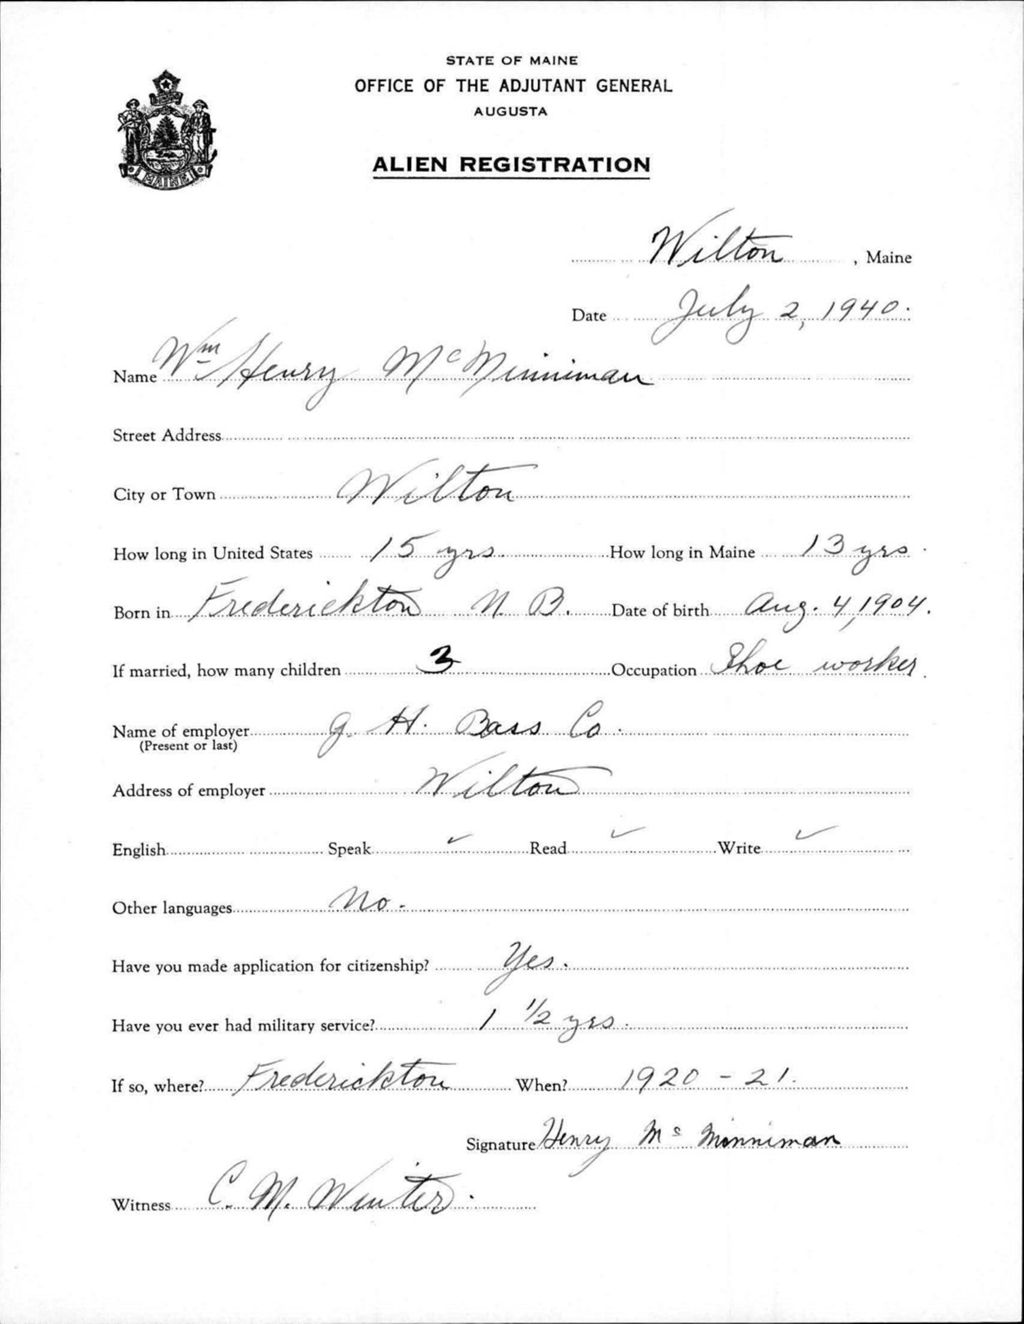 STATE OF MAINE
OFFICE OF THE ADJUTANT GENERAL
AUGUSTA
MAINE
ALIEN REGISTRATION
Wilton, Maine
Date July 2, 1940.
Name Wm Henry McMinniman
Street Address
City or Town Wilton
How long in United States 15 yrs. How long in Maine 13 yrs.
Born in Frederickton N. B. Date of birth Aug. 4, 1904.
If married, how many children 3 Occupation Shoe worker.
Name of employer G. H. Bass Co.
(Present or last)
Address of employer Wilton
English Speak ✓ Read ✓ Write ✓
Other languages No.
Have you made application for citizenship? Yes.
Have you ever had military service? 1 1/2 yrs.
If so, where? Frederickton When? 1920 - 21.
Signature Henry Mc Minniman
Witness C. M. Winter.